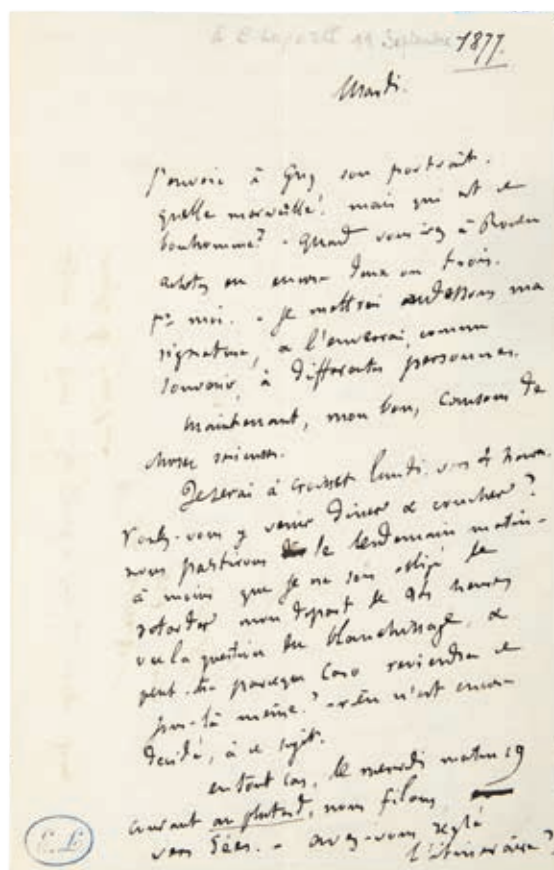 à E. Laporte 11 Septembre 1877.
Mardi.
J'envoie à Guy son portrait.
quelle merveille! mais qui est ce
bonhomme? - quand vous irez à Rouen
achetez en encore deux ou trois.
pr moi. - je mettrai au dessous ma
signature, & l'enverrai, comme
souvenir, à différentes personnes.
Maintenant, mon bon, causons de
choses sérieuses.
Je serai à Croisset lundi. vers 4 heures.
Voulez-vous y venir dîner & coucher?
nous partirons le lendemain matin -
à moins que je ne sois obligé de
retarder mon départ de 24 heures
vu la question du blanchissage, &
peut-être parceque Caro reviendra ce
jour-là même? - rien n'est encore
décidé, à ce sujet.
en tout cas, le mercredi matin 19
courant au plus tard, nous filons,
vers Sées. - avez-vous réglé
l'itinéraire?
E. L.